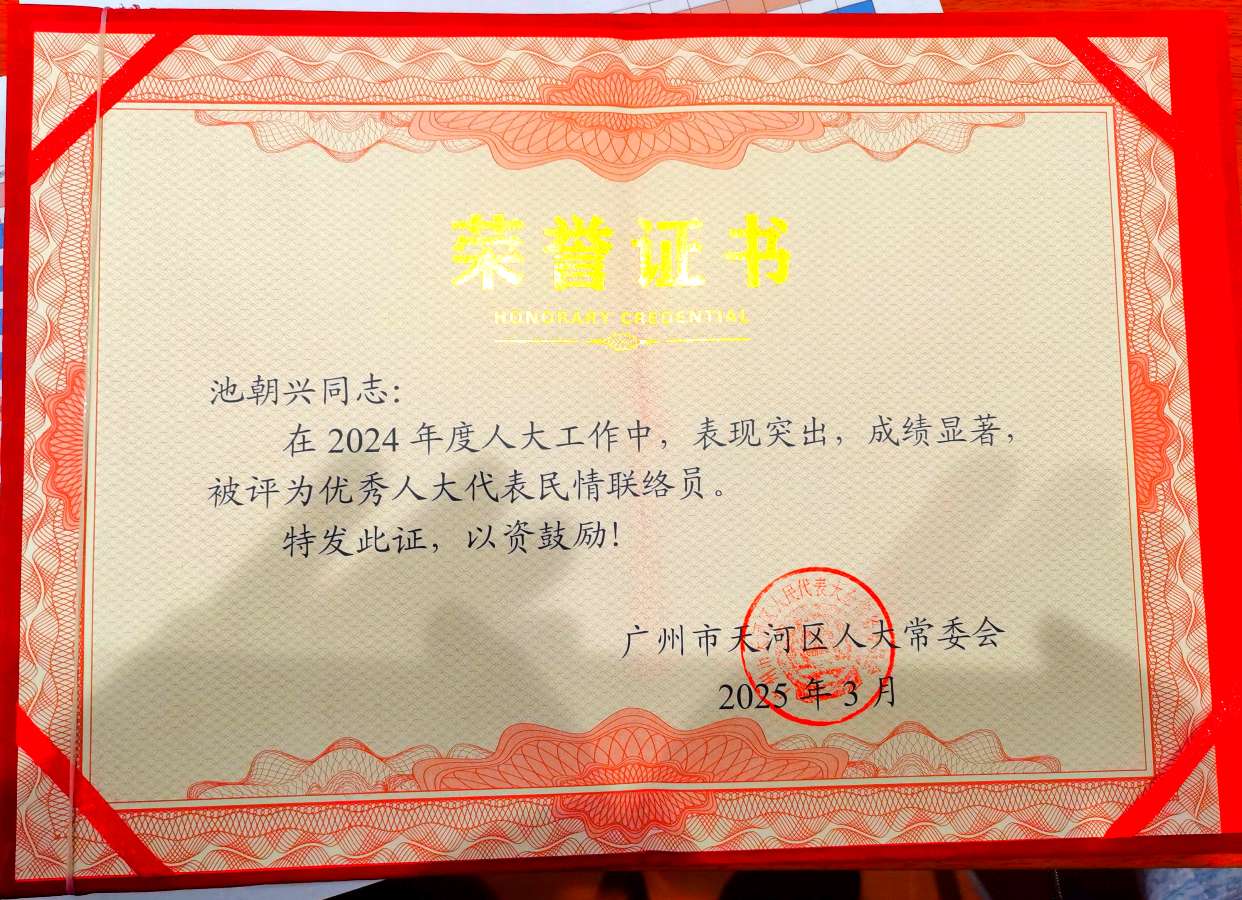 荣誉证书
HONORARY CREDENTIAL
池朝兴同志：
在 2024 年度人大工作中，表现突出，成绩显著，
被评为优秀人大代表民情联络员。
特发此证，以资鼓励！
广州市天河区人大常委会
2025 年 3 月
人民代表大会